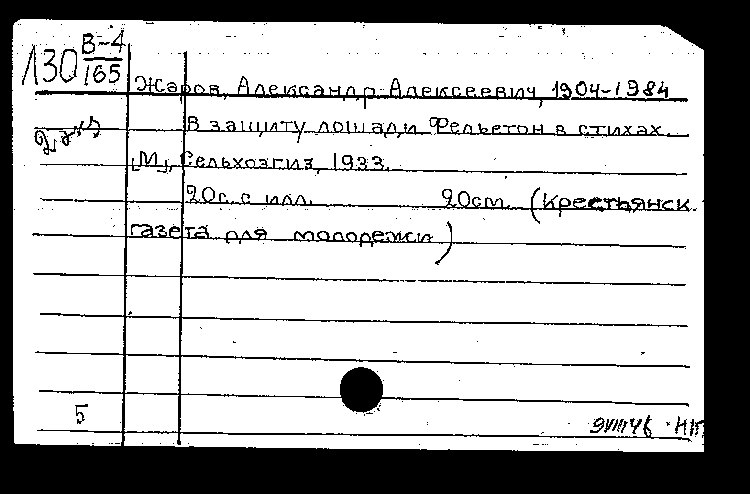 130 В-4
165
Жаров, Александр Алексеевич, 1904-1984
В защиту лошади. Фельетон в стихах.
[М], Сельхозгиз, 1933.
20с. с илл. 20см. (Крестьянск.
газета для молодежи)
5